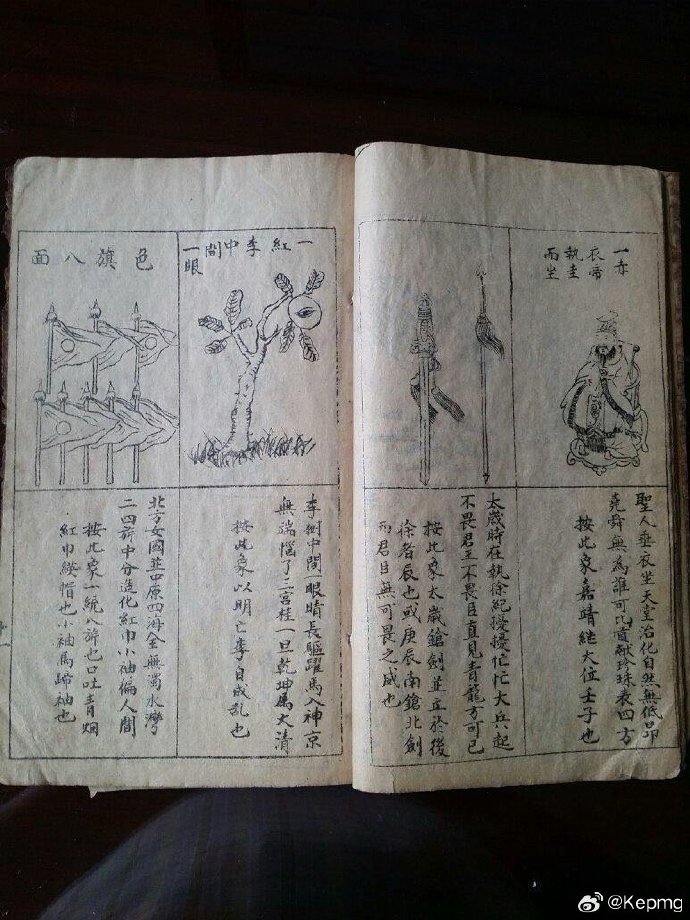 一赤
衣帝
執圭
而坐
聖人垂衣坐天堂治化自然無低昂
堯舜無為誰可比貢獻珍珠表四方
按此象嘉靖継大位壬子也
太歲時在執徐紀擾擾忙忙大兵起
不畏君王不畏臣直見青龍方可已
按此象太歲鎗劍並立於後
徐者辰也或庚辰南鎗北劍
而君臣無可畏之威也
一紅李中間一眼
李樹中間一眼睛長驅躍馬入神京
無端惱了二宮桂一旦乾坤屬大清
按此象以明亡李自成亂也
色旗八面
北方女國並中原四海全無濁水灣
二四旂中分造化紅巾小袖偏人間
按此象一統八旂也口吐青烟
紅巾緩帽也小袖馬蹄袖也
@Kepmg